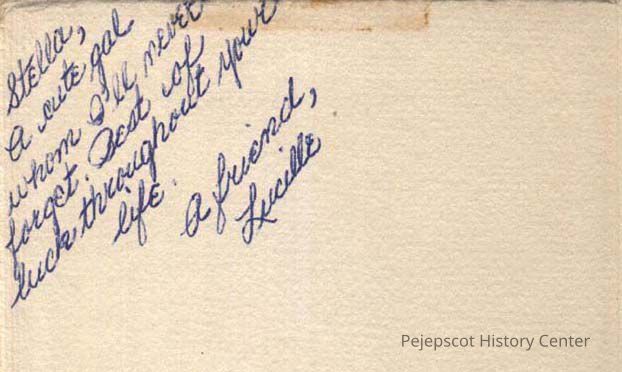 Stella,
A cute gal
whom I'll never
forget. Best of
luck throughout your
life.
A friend,
Lucille
Pejepscot History Center